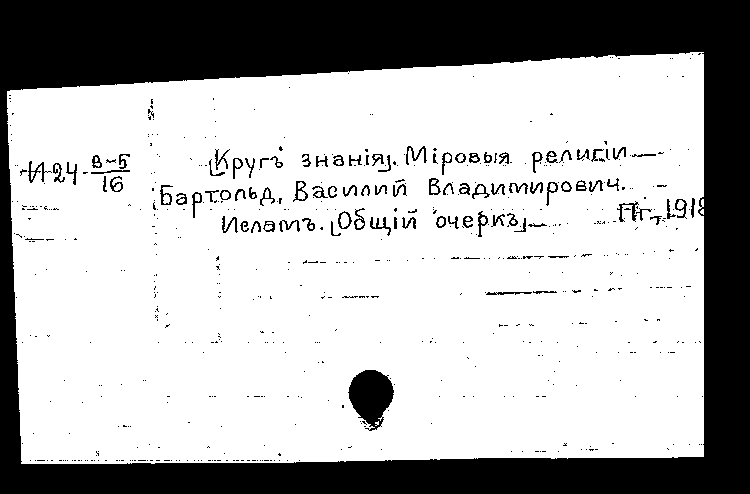 И 24 В-5/16
[Кругъ знанія]. Міровыя религіи
Бартольд, Василий Владимирович.
Исламъ. [Общій очеркъ] Пг., 1918